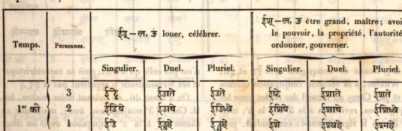 Temps. Personnes. ईड्—ल, ङ louer, célébrer. ईश्—ल, ङ être grand, maître; avoi
le pouvoir, la propriété, l'autorité
ordonner, gouverner.
Singulier. Duel. Pluriel. Singulier. Duel. Pluriel.
3 ईट्टे ईडाते ईडते ईष्टे ईशाते ईशते
1re की 2 ईडिषे ईडाथे ईडिध्वे ईशिषे ईशाथे ईशिध्वे
1 ईडे ईड्वहे ईड्महे ईशे ईश्वहे ईश्महे